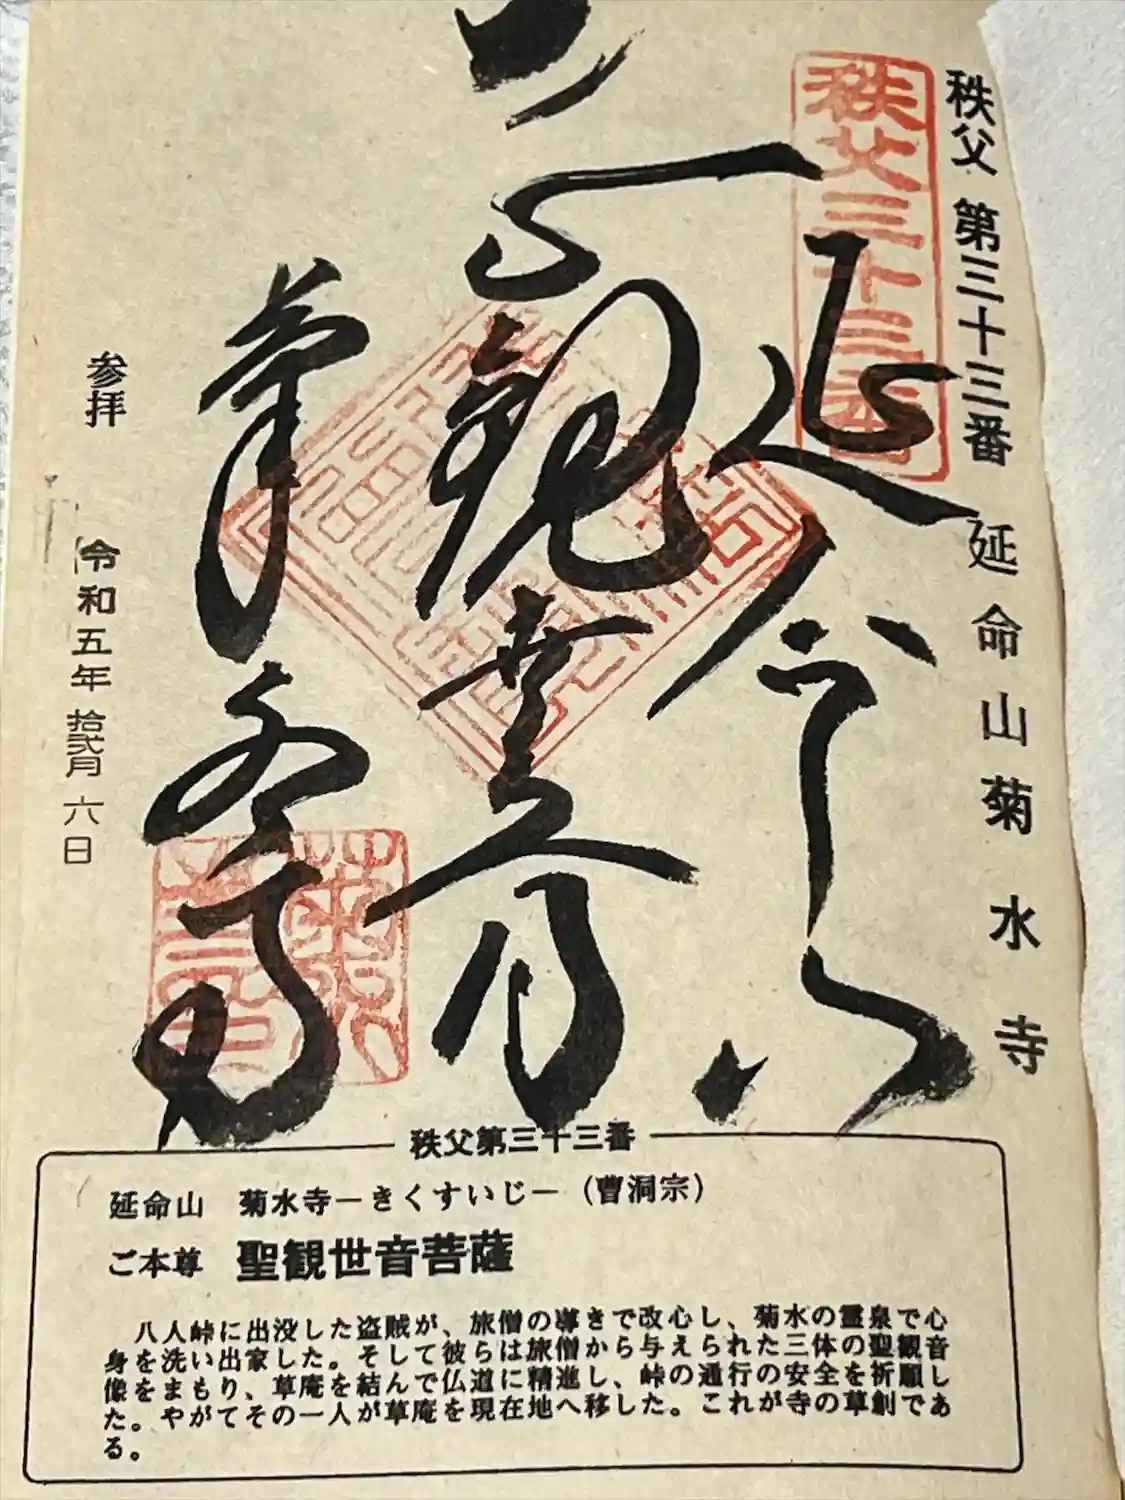 秩父 第三十三番 延命山菊水寺
秩父三十三番
延命山
聖観世音
菊水寺
参拝 令和五年拾弐月六日
秩父第三十三番
延命山 菊水寺－きくすいじ－（曹洞宗）
ご本尊 聖観世音菩薩
八人峠に出没した盗賊が、旅僧の導きで改心し、菊水の霊泉で心
身を洗い出家した。そして彼らは旅僧から与えられた三体の聖観音
像をまもり、草庵を結んで仏道に精進し、峠の通行の安全を祈願し
た。やがてその一人が草庵を現在地へ移した。これが寺の草創であ
る。